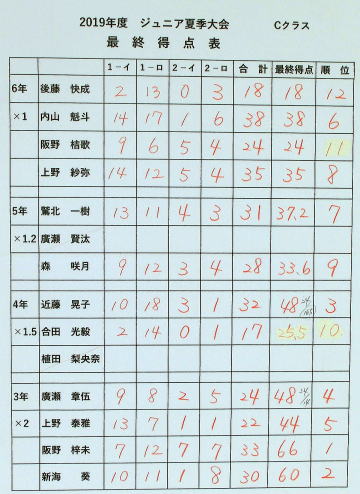 2019年度 ジュニア夏季大会 Cクラス
最終得点表
1-イ 1-ロ 2-イ 2-ロ 合計 最終得点 順位
6年 後藤 快成 2 13 0 3 18 18 12
×1 内山 魁斗 14 17 1 6 38 38 6
阪野 桔歌 9 6 5 4 24 24 11
上野 紗弥 14 12 5 4 35 35 8
5年 鷲北 一樹 13 11 4 3 31 37.2 7
×1.2 廣瀬 賢汰
森 咲月 9 12 3 4 28 33.6 9
4年 近藤 晃子 10 18 3 1 32 48 3
×1.5 合田 光毅 2 14 0 1 17 25.5 10
植田 梨央奈
3年 廣瀬 章伍 9 8 2 5 24 48 4
×2 上野 泰雅 13 7 1 1 22 44 5
阪野 梓未 7 12 7 7 33 66 1
新海 葵 10 11 1 8 30 60 2